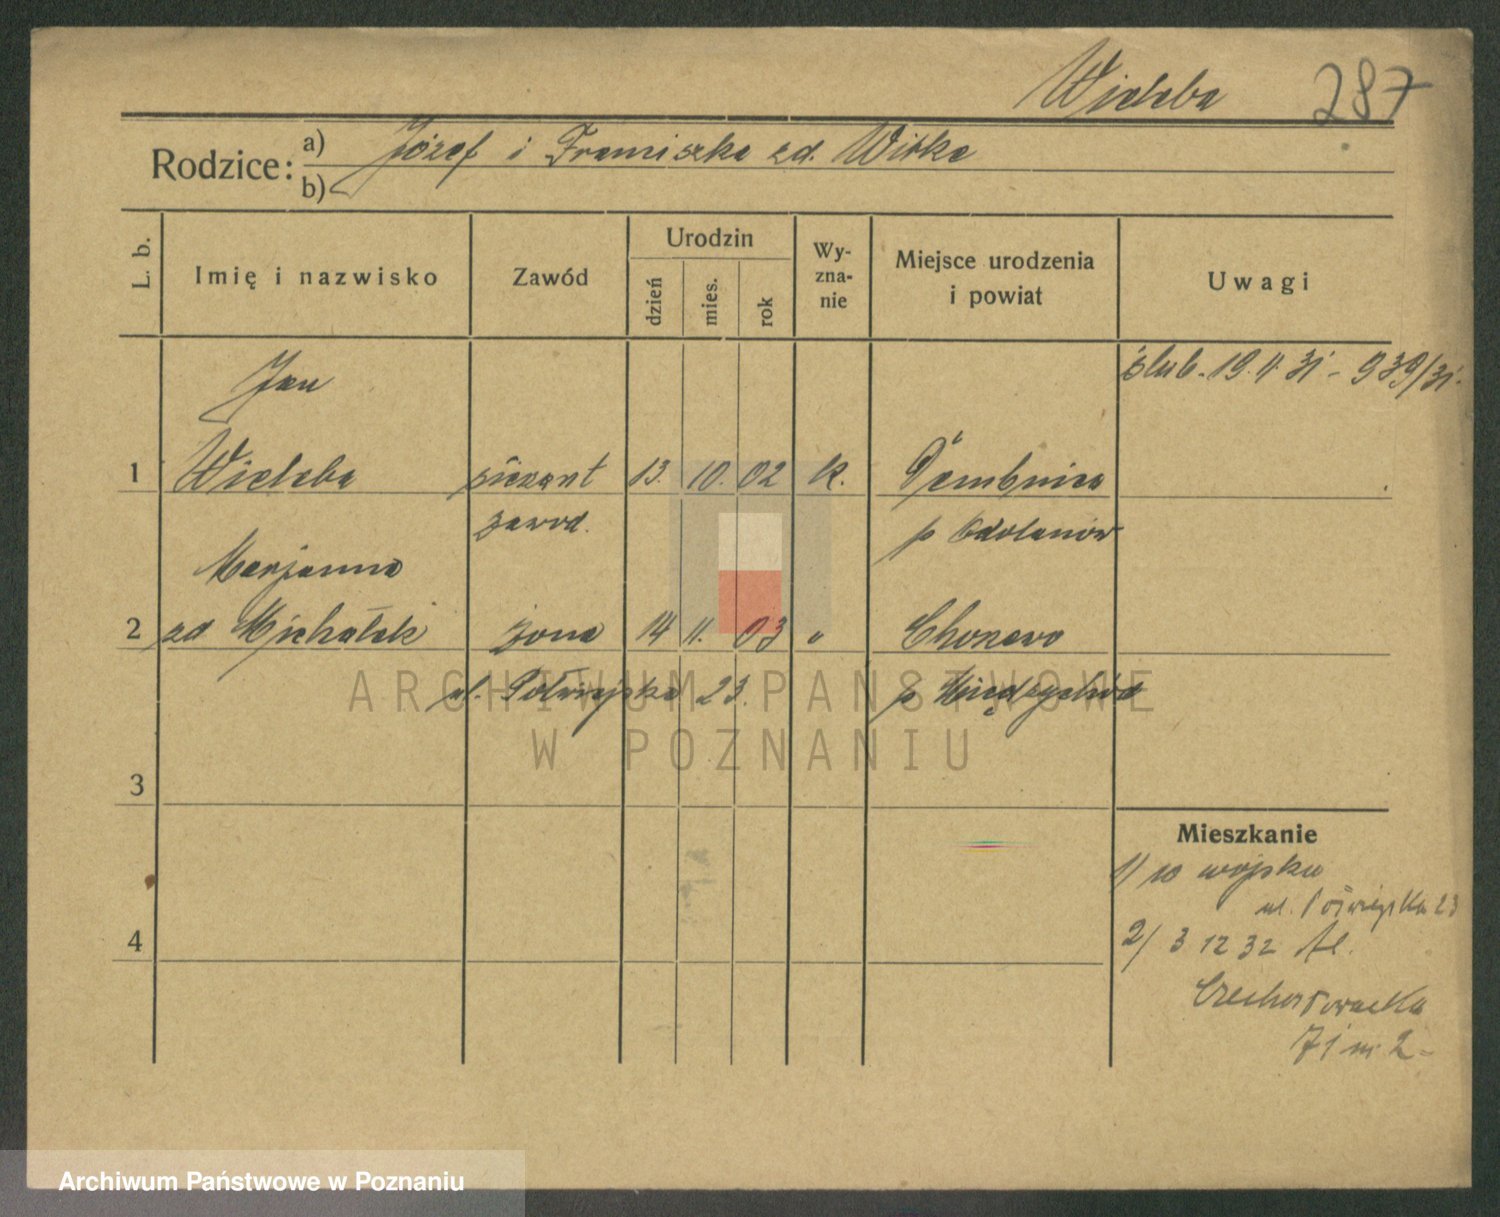 Wieleba 287
Rodzice: a) Józef i Franciszka zd. Witka
b)
L. b. Imię i nazwisko Zawód Urodzin dzień mies. rok Wy-zna-nie Miejsce urodzenia i powiat Uwagi
Jan ślub. 19. 31 - 939/31.
1 Wieleba sierżant 13. 10. 02 k. Dembnica
zawod. p Odolanów
Marjanna
2 zd Michałek żona 14 11. 03 " Chorzewo
ul. Półwiejska 23. p Międzychód
ARCHIWUM PAŃSTWOWE
W POZNANIU
3
Mieszkanie
1/ w wojsku
ul. Półwiejska 23
4 2/ 3 12 32
Czechosłowacka
71 m 2 -
Archiwum Państwowe w Poznaniu